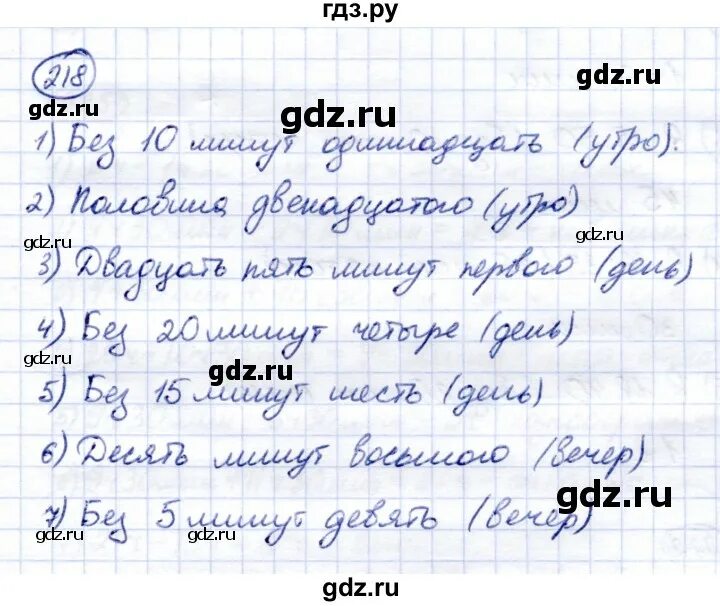 гдз.ру
218
gdz.ru
gdz.ru
1) Без 10 минут одиннадцать (утро).
2) Половина двенадцатого (утро)
gdz.ru
gdz.ru
3) Двадцать пять минут первого (день)
4) Без 20 минут четыре (день)
gdz.ru
gdz.ru
5) Без 15 минут шесть (день)
6) Десять минут восьмого (вечер)
gdz.ru
7) Без 5 минут девять (вечер)
gdz.ru
gdz.ru
gdz.ru